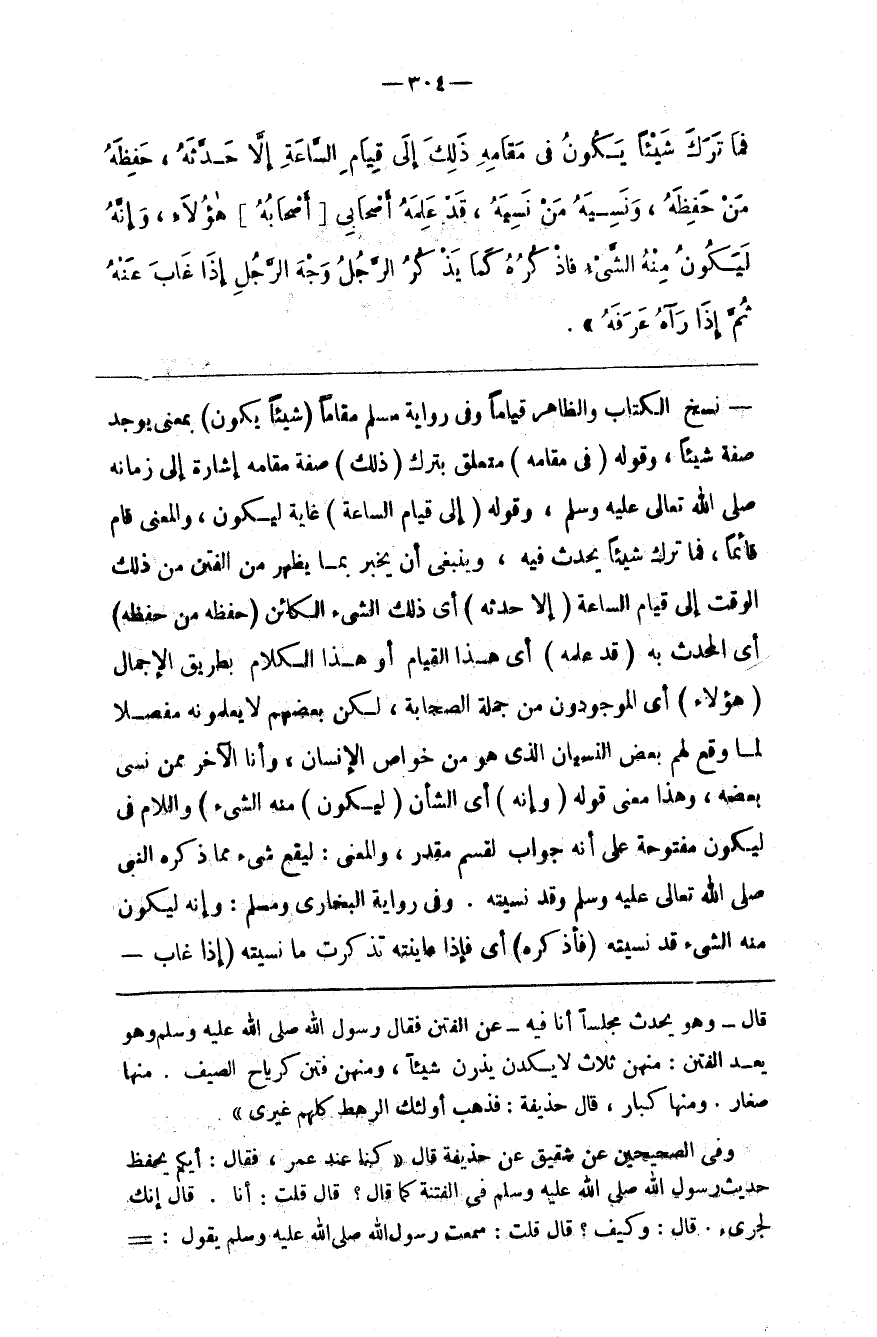 — ٣٠٤ —
فَمَا تَرَكَ شَيْئاً يَكُونُ فى مَقَامِهِ ذَلِكَ إِلَى قِيَامِ السَّاعَةِ إِلَّا حَدَّثَهُ ، حَفِظَهُ
مَنْ حَفِظَهُ ، وَنَسِيَهُ مَنْ نَسِيَهُ ، قَدْ عَلِمَهُ أَصْحَابِى [ أَصْحَابُهُ ] هٰؤُلَاءِ ، وَإِنَّهُ
لَيَكُونُ مِنْهُ الشَّىْءِ فاذْ كُرُهُ كَمَا يَذْ كُرُ الرَّجُلُ وَجْهَ الرَّجُلِ إِذَا غَابَ عَنْهُ
ثُمَّ إِذَا رَآهُ عَرَفَهُ » .
— نسخ الكتاب والظاهر قياماً وفى رواية مسلم مقاماً (شيئاً يكون) بمعنى يوجد
صفة شيئاً ، وقوله ( فى مقامه ) متعلق بترك ( ذلك ) صفة مقامه إشارة إلى زمانه
صلى الله تعالى عليه وسلم ، وقوله ( إلى قيام الساعة ) غاية ليكون ، والمعنى قام
قائماً ، فما ترك شيئاً يحدث فيه ، وينبغى أن يخبر بما يظهر من الفتن من ذلك
الوقت إلى قيام الساعة ( إلا حدثه ) أى ذلك الشىء الكائن (حفظه من حفظه)
أى المحدث به ( قد علمه ) أى هذا القيام أو هذا الكلام بطريق الإجمال
( هؤلاء ) أى الموجودون من جملة الصحابة ، لكن بعضهم لا يعلمونه مفصلا
لما وقع لهم بعض النسيان الذى هو من خواص الإنسان ، وأنا الآخر ممن نسى
بعضه ، وهذا معنى قوله ( وإنه ) أى الشأن ( ليكون ) منه الشىء ) واللام فى
ليكون مفتوحة على أنه جواب لقسم مقدر ، والمعنى : ليقع شىء مما ذكره النبى
صلى الله تعالى عليه وسلم وقد نسيته . وفى رواية البخارى ومسلم : وإنه ليكون
منه الشىء قد نسيته (فأذكره) أى فإذا عاينته تذكرت ما نسيته (إذا غاب —
قال – وهو يحدث مجلساً أنا فيه – عن الفتن فقال رسول الله صلى الله عليه وسلم وهو
يعد الفتن : منهن ثلاث لا يكدن يذرن شيئاً ، ومنهن فتن كرياح الصيف . منها
صغار . ومنها كبار ، قال حذيفة : فذهب أولئك الرهط كلهم غيرى »
وفى الصحيحين عن شقيق عن حذيفة قال « كنا عند عمر ، فقال : أيكم يحفظ
حديث رسول الله صلى الله عليه وسلم فى الفتنة كما قال ؟ قال قلت : أنا . قال إنك
لجرىء . قال : وكيف ؟ قال قلت : سمعت رسول الله صلى الله عليه وسلم يقول : =